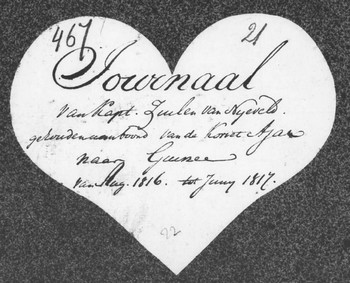 467 21
Journaal
van Kapt. Zuilen van Nyevelt.
gehouden aan boord van de korvet Ajax
naar Guinee
van Aug. 1816. tot Juny 1817.
22